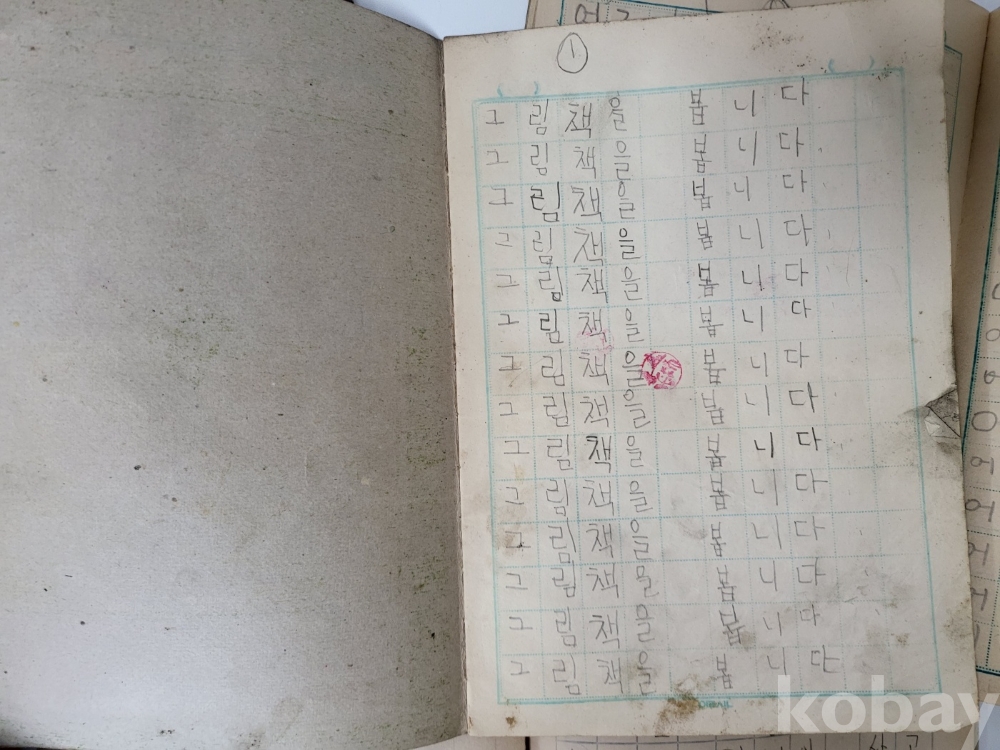 1
그림책을 봅니다
그림책을 봅니다
그림책을 봅니다
그림책을 봅니다
그림책을 봅니다
그림책을 봅니다
그림책을 봅니다
그림책을 봅니다
그림책을 봅니다
그림책을 봅니다
그림책을 봅니다
그림책을 봅니다
그림책을 봅니다
그림책을 봅니다
kobay